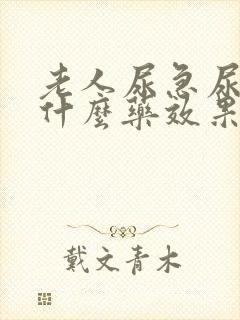 老人尿急尿
什麼藥效果
戴文青木